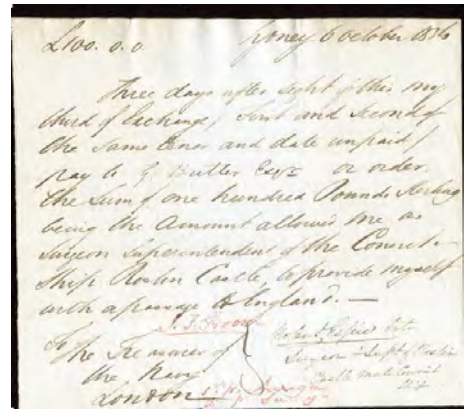 £100. 0. 0 Sydney 6 October 1836
Three days after sight of this my
third of Exchange / first and second of
the same tenor and date unpaid /
pay to G. Butler Esqr or order
the Sum of one hundred Pounds Sterling
being the Amount allowed me as
Surgeon Superintendent of the Convict
Ship Roslin Castle, to provide myself
with a passage to England. —
To
The Treasurer of
the Navy
London
Surgeon & Supt of Roslin
Castle male Convict
Ship